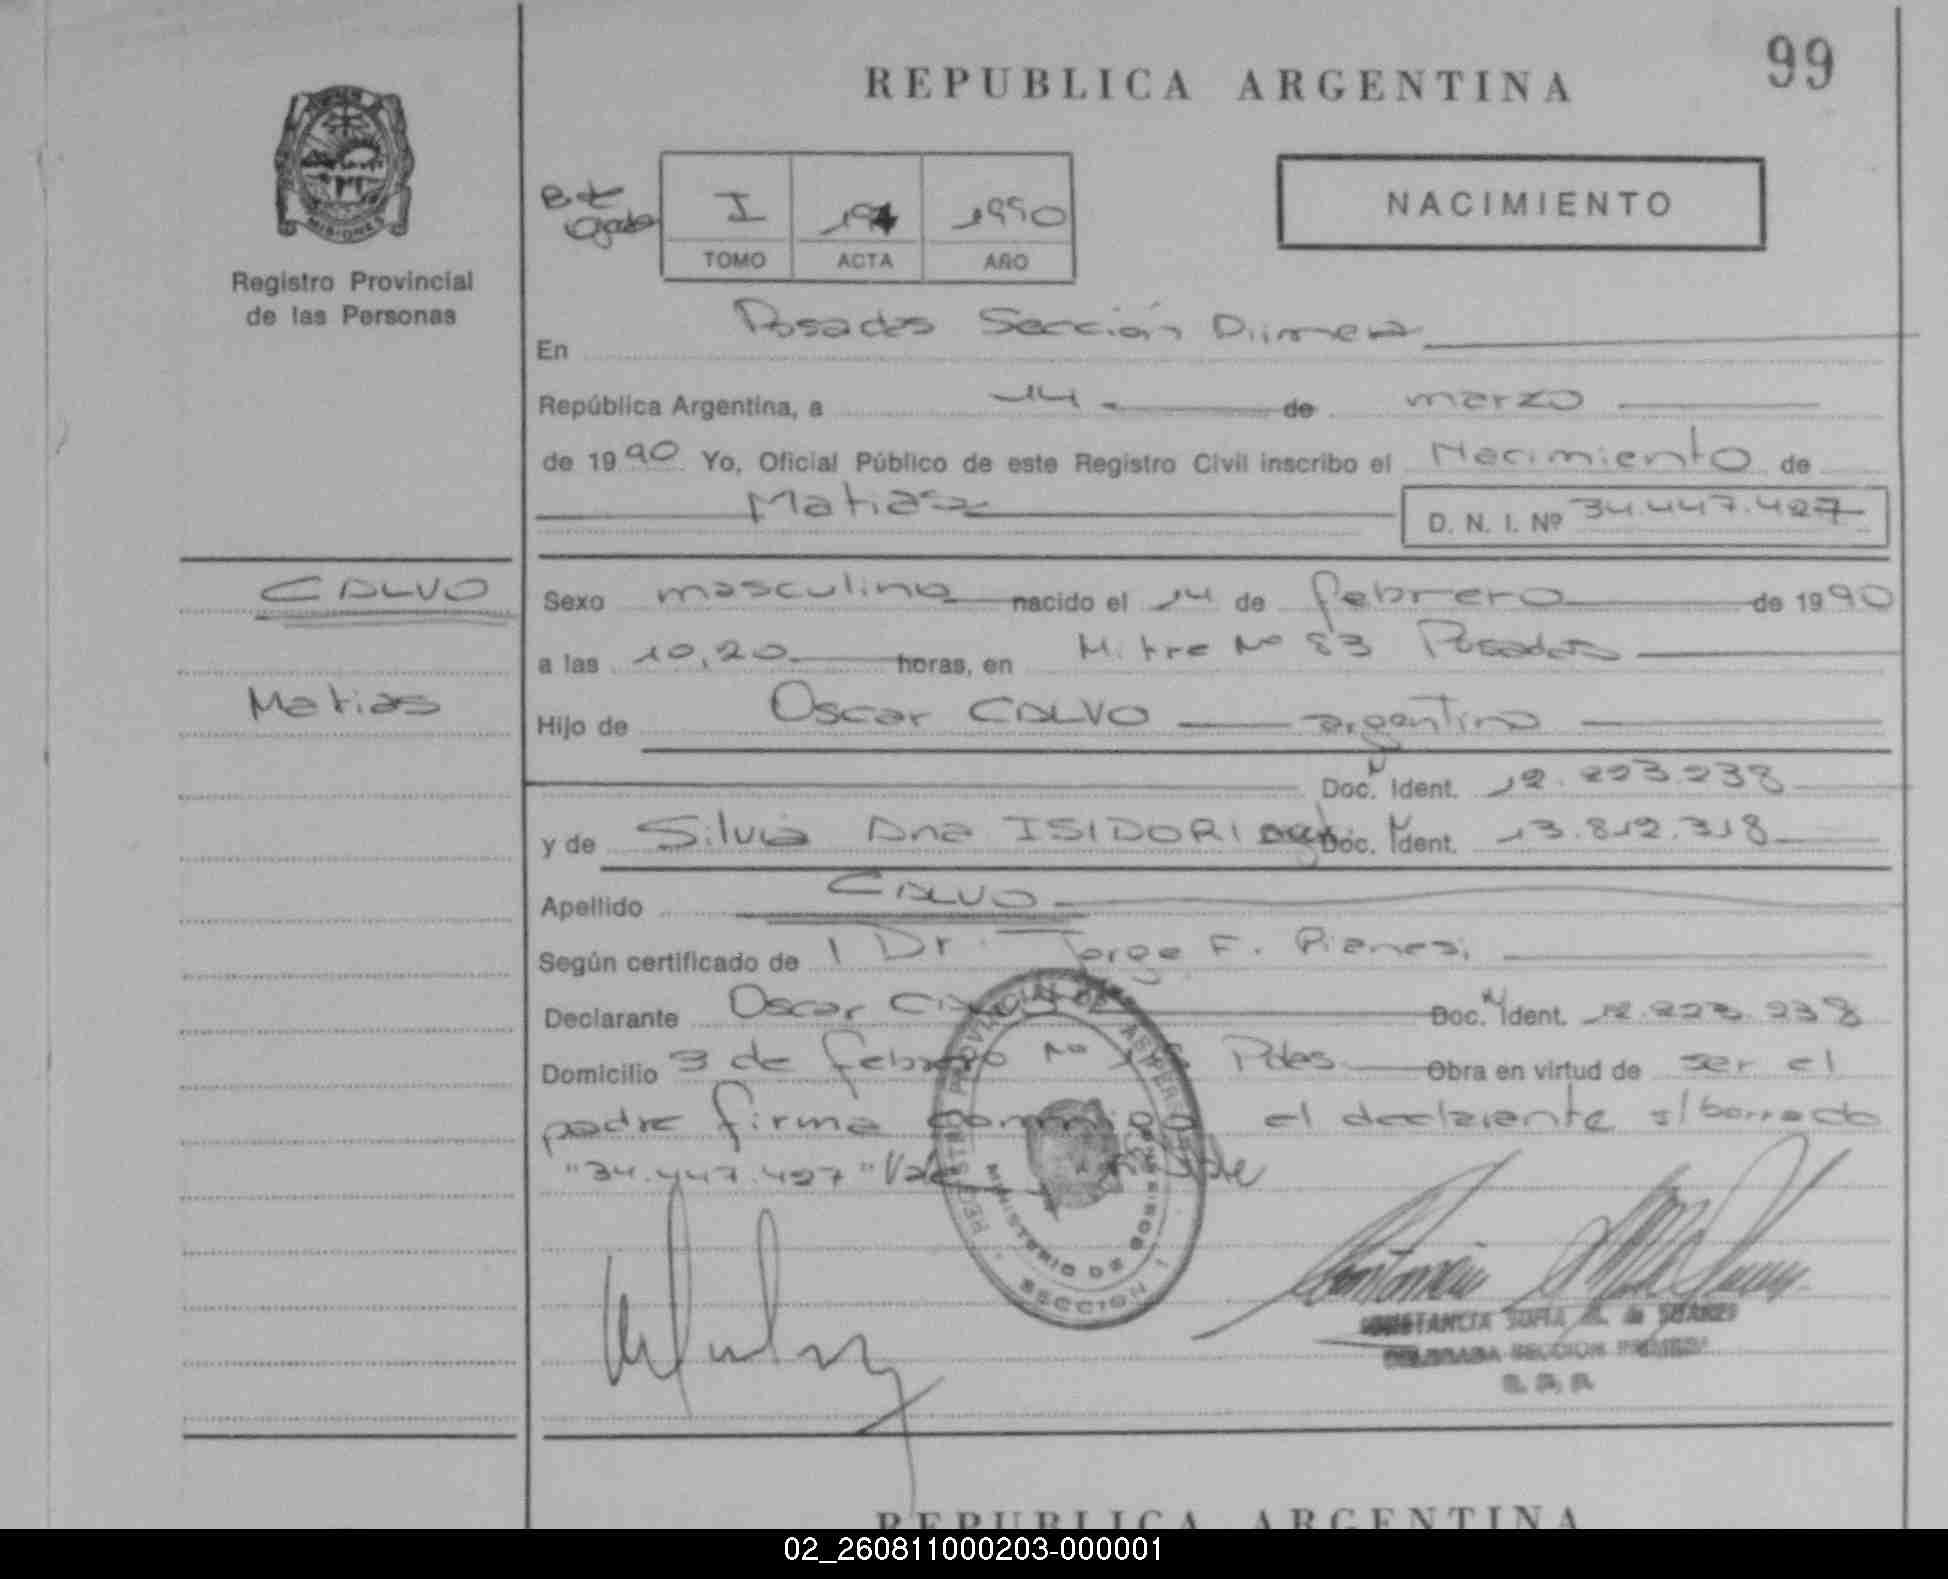 99
REPUBLICA ARGENTINA
NACIMIENTO
I 1990
TOMO ACTA AÑO
MISIONES
Registro Provincial
de las Personas
En Posadas Sección Primera
República Argentina, a 14 de marzo
de 1990 Yo, Oficial Público de este Registro Civil inscribo el Nacimiento de
Matias D. N. I. Nº 34.447.427
CALVO
Matias
Sexo masculino nacido el 14 de febrero de 1990
a las 10,20 horas, en Mitre Nº 83 Posadas
Hijo de Oscar CALVO argentino
Doc. Ident. 12.223.238
y de Silvia Ana ISIDORI Doc. Ident. 13.812.318
Apellido CALVO
Según certificado de Dr. Jorge F. Pianesi
Declarante Oscar Calvo Doc. Ident. 12.223.238
Domicilio 3 de febrero Nº Pdas. Obra en virtud de ser el
padre firma conmigo el declarante s/borrado
"34.447.427" Vale
REGISTRO PROVINCIAL DE LAS PERSONAS
MINISTERIO DE GOB MISIONES
SECCION 1
CONSTANCIA SOFIA de SUAREZ
DELEGADA SECCION PRIMERA
REPUBLICA ARGENTINA
02_260811000203-000001